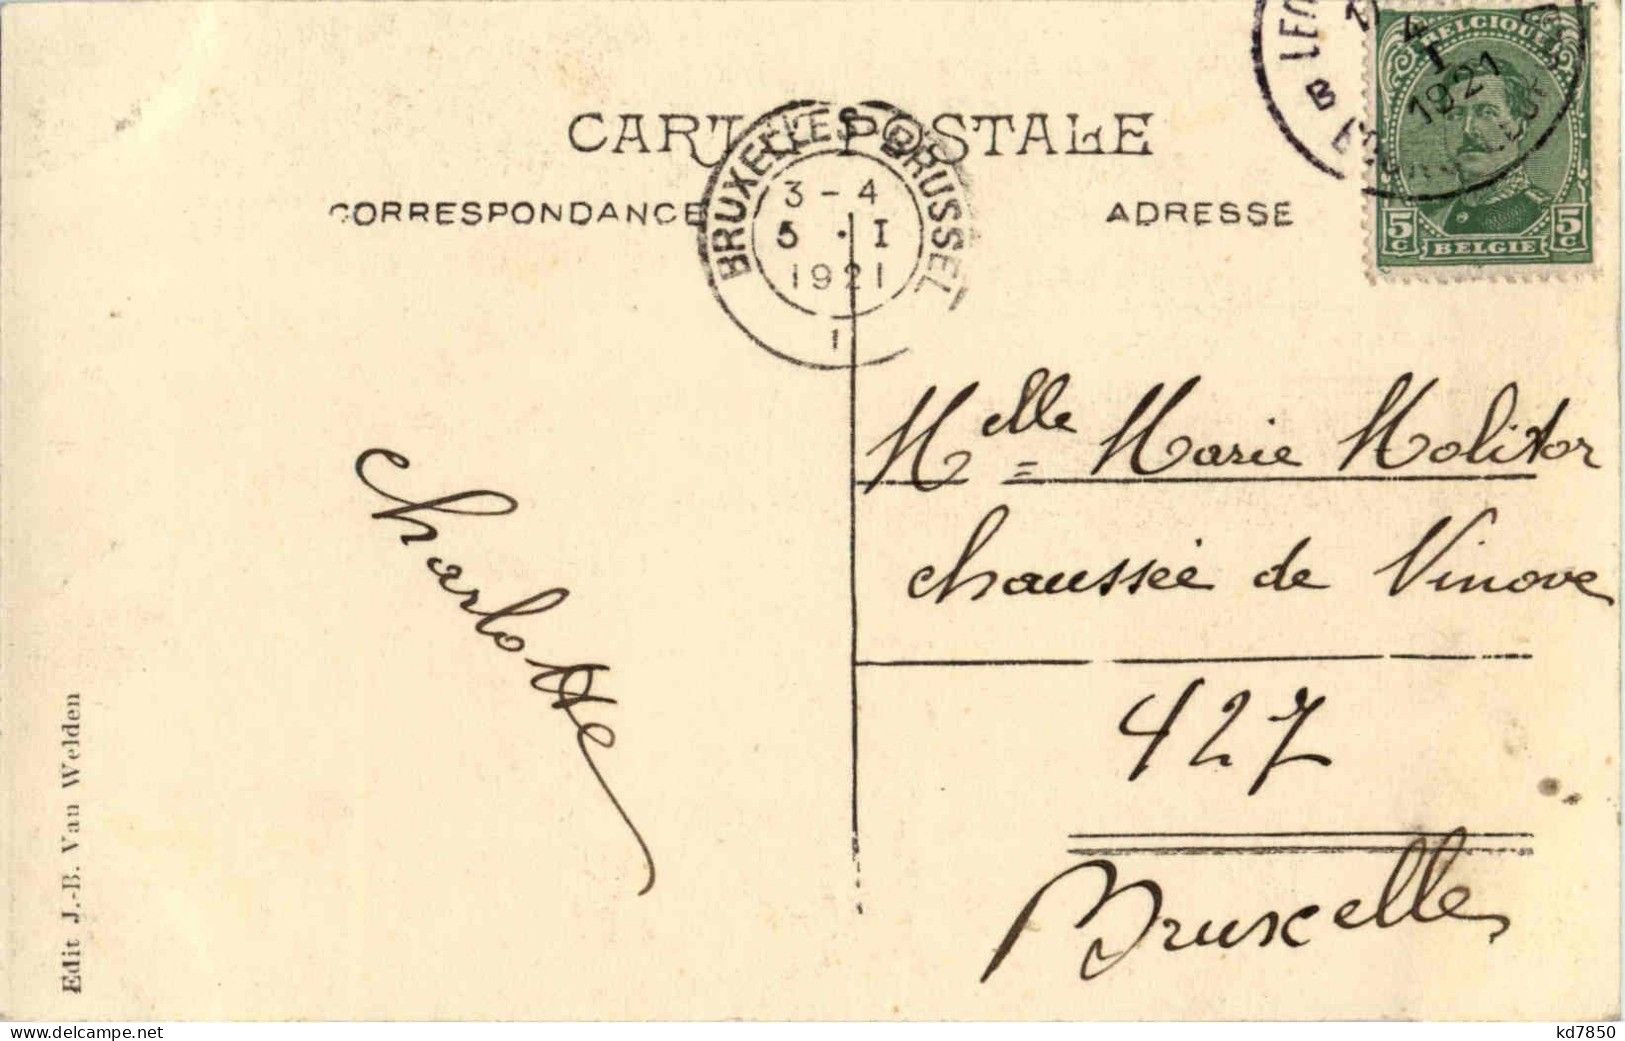 CARTE POSTALE
CORRESPONDANCE
ADRESSE
BRUXELLES BRUSSEL
3 - 4
5 · I
1921
1
4
I
1921
B
BELGIQUE
5c BELGIE 5c
Melle Marie Molitor
chaussée de Ninove
427
Bruxelles
Charlotte
Edit J.-B. Van Welden
kd7850